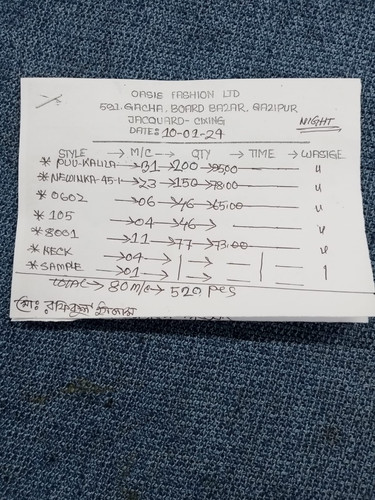 OASIS FASHION LTD
581. GACHA. BOARD BAZAR. GAZIPUR
JACQUARD- CIXING NIGHT
DATE: 10-01-24
STYLE → M/C → QTY → TIME → WASTGE
* → 31 → 200 → "
* → 23 → 150 → 78:00 "
* 0602 → 06 → 46 → 65:00 "
* 105 → 04 → 46 → "
* 8001 → 11 → 77 → 73:00 "
* NECK → 04 →
* SAMPLE → 01 →
TOTAL → 80 M/c → 520 pcs
মোঃ